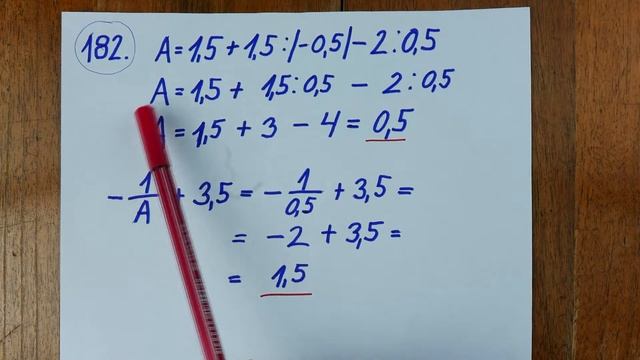 182. A = 1,5 + 1,5 : |-0,5| - 2 : 0,5
A = 1,5 + 1,5 : 0,5 - 2 : 0,5
A = 1,5 + 3 - 4 = 0,5
-1/A + 3,5 = -1/0,5 + 3,5 =
= -2 + 3,5 =
= 1,5